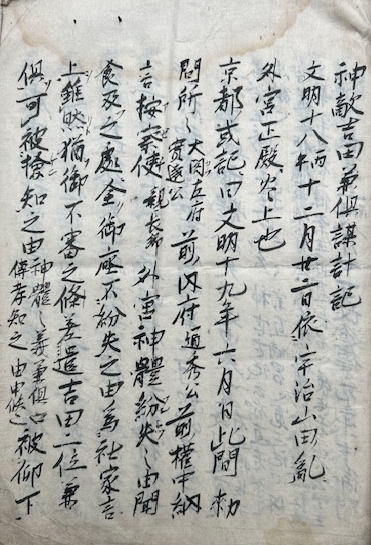 神敵吉田兼倶謀計記
文明十八年丙午十二月廿二日依宇治山田乱
外宮正殿炎上也
京都或記曰文明十九年六月日此間勅
問所々大閤左府實遠公前内府通秀公前権中納
言按察使親長卿外宮神體紛失之由聞
食及之處全御座不紛失之由為社家言
上雖然猶御不審之條差遣吉田二位兼
倶可被撿知之由神體之義兼倶口傳孝知之由申候也被仰下